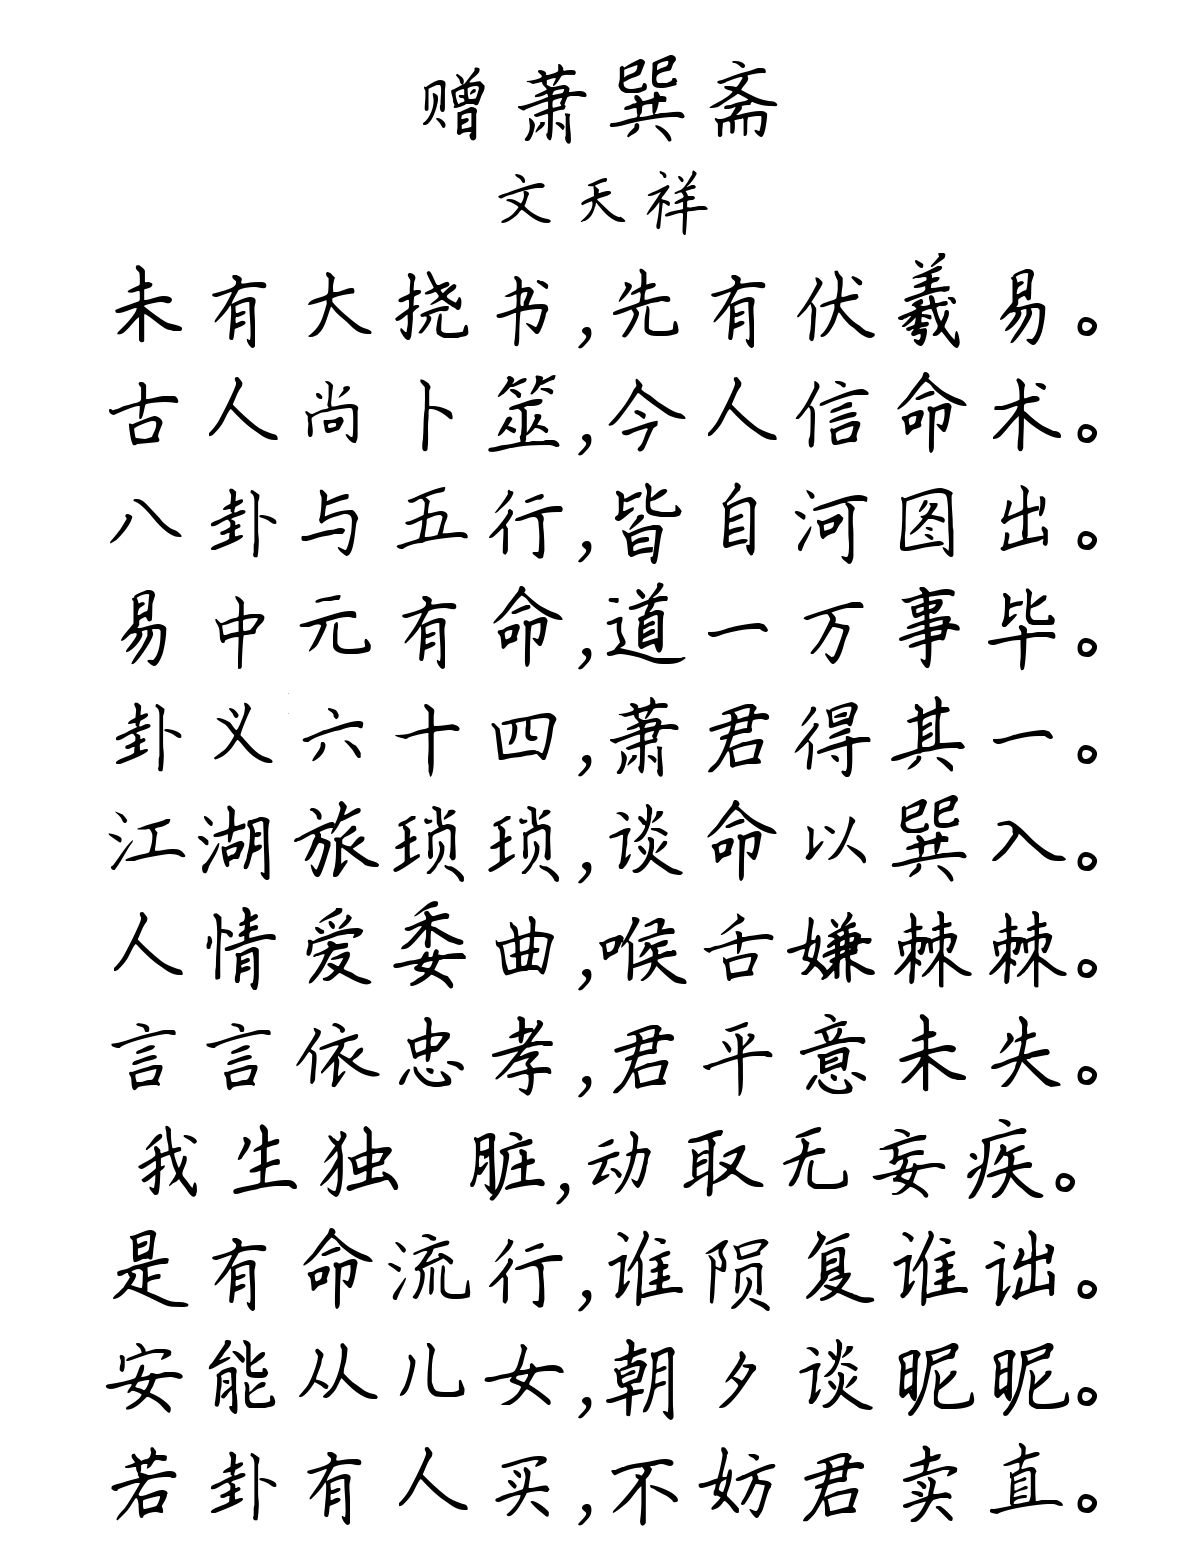 赠萧巽斋
文天祥
未有大挠书,先有伏羲易。
古人尚卜筮,今人信命术。
八卦与五行,皆自河图出。
易中元有命,道一万事毕。
卦义六十四,萧君得其一。
江湖旅琐琐,谈命以巽入。
人情爱委曲,喉舌嫌棘棘。
言言依忠孝,君平意未失。
我生独 脏,动取无妄疾。
是有命流行,谁陨复谁诎。
安能从儿女,朝夕谈昵昵。
若卦有人买,不妨君卖直。